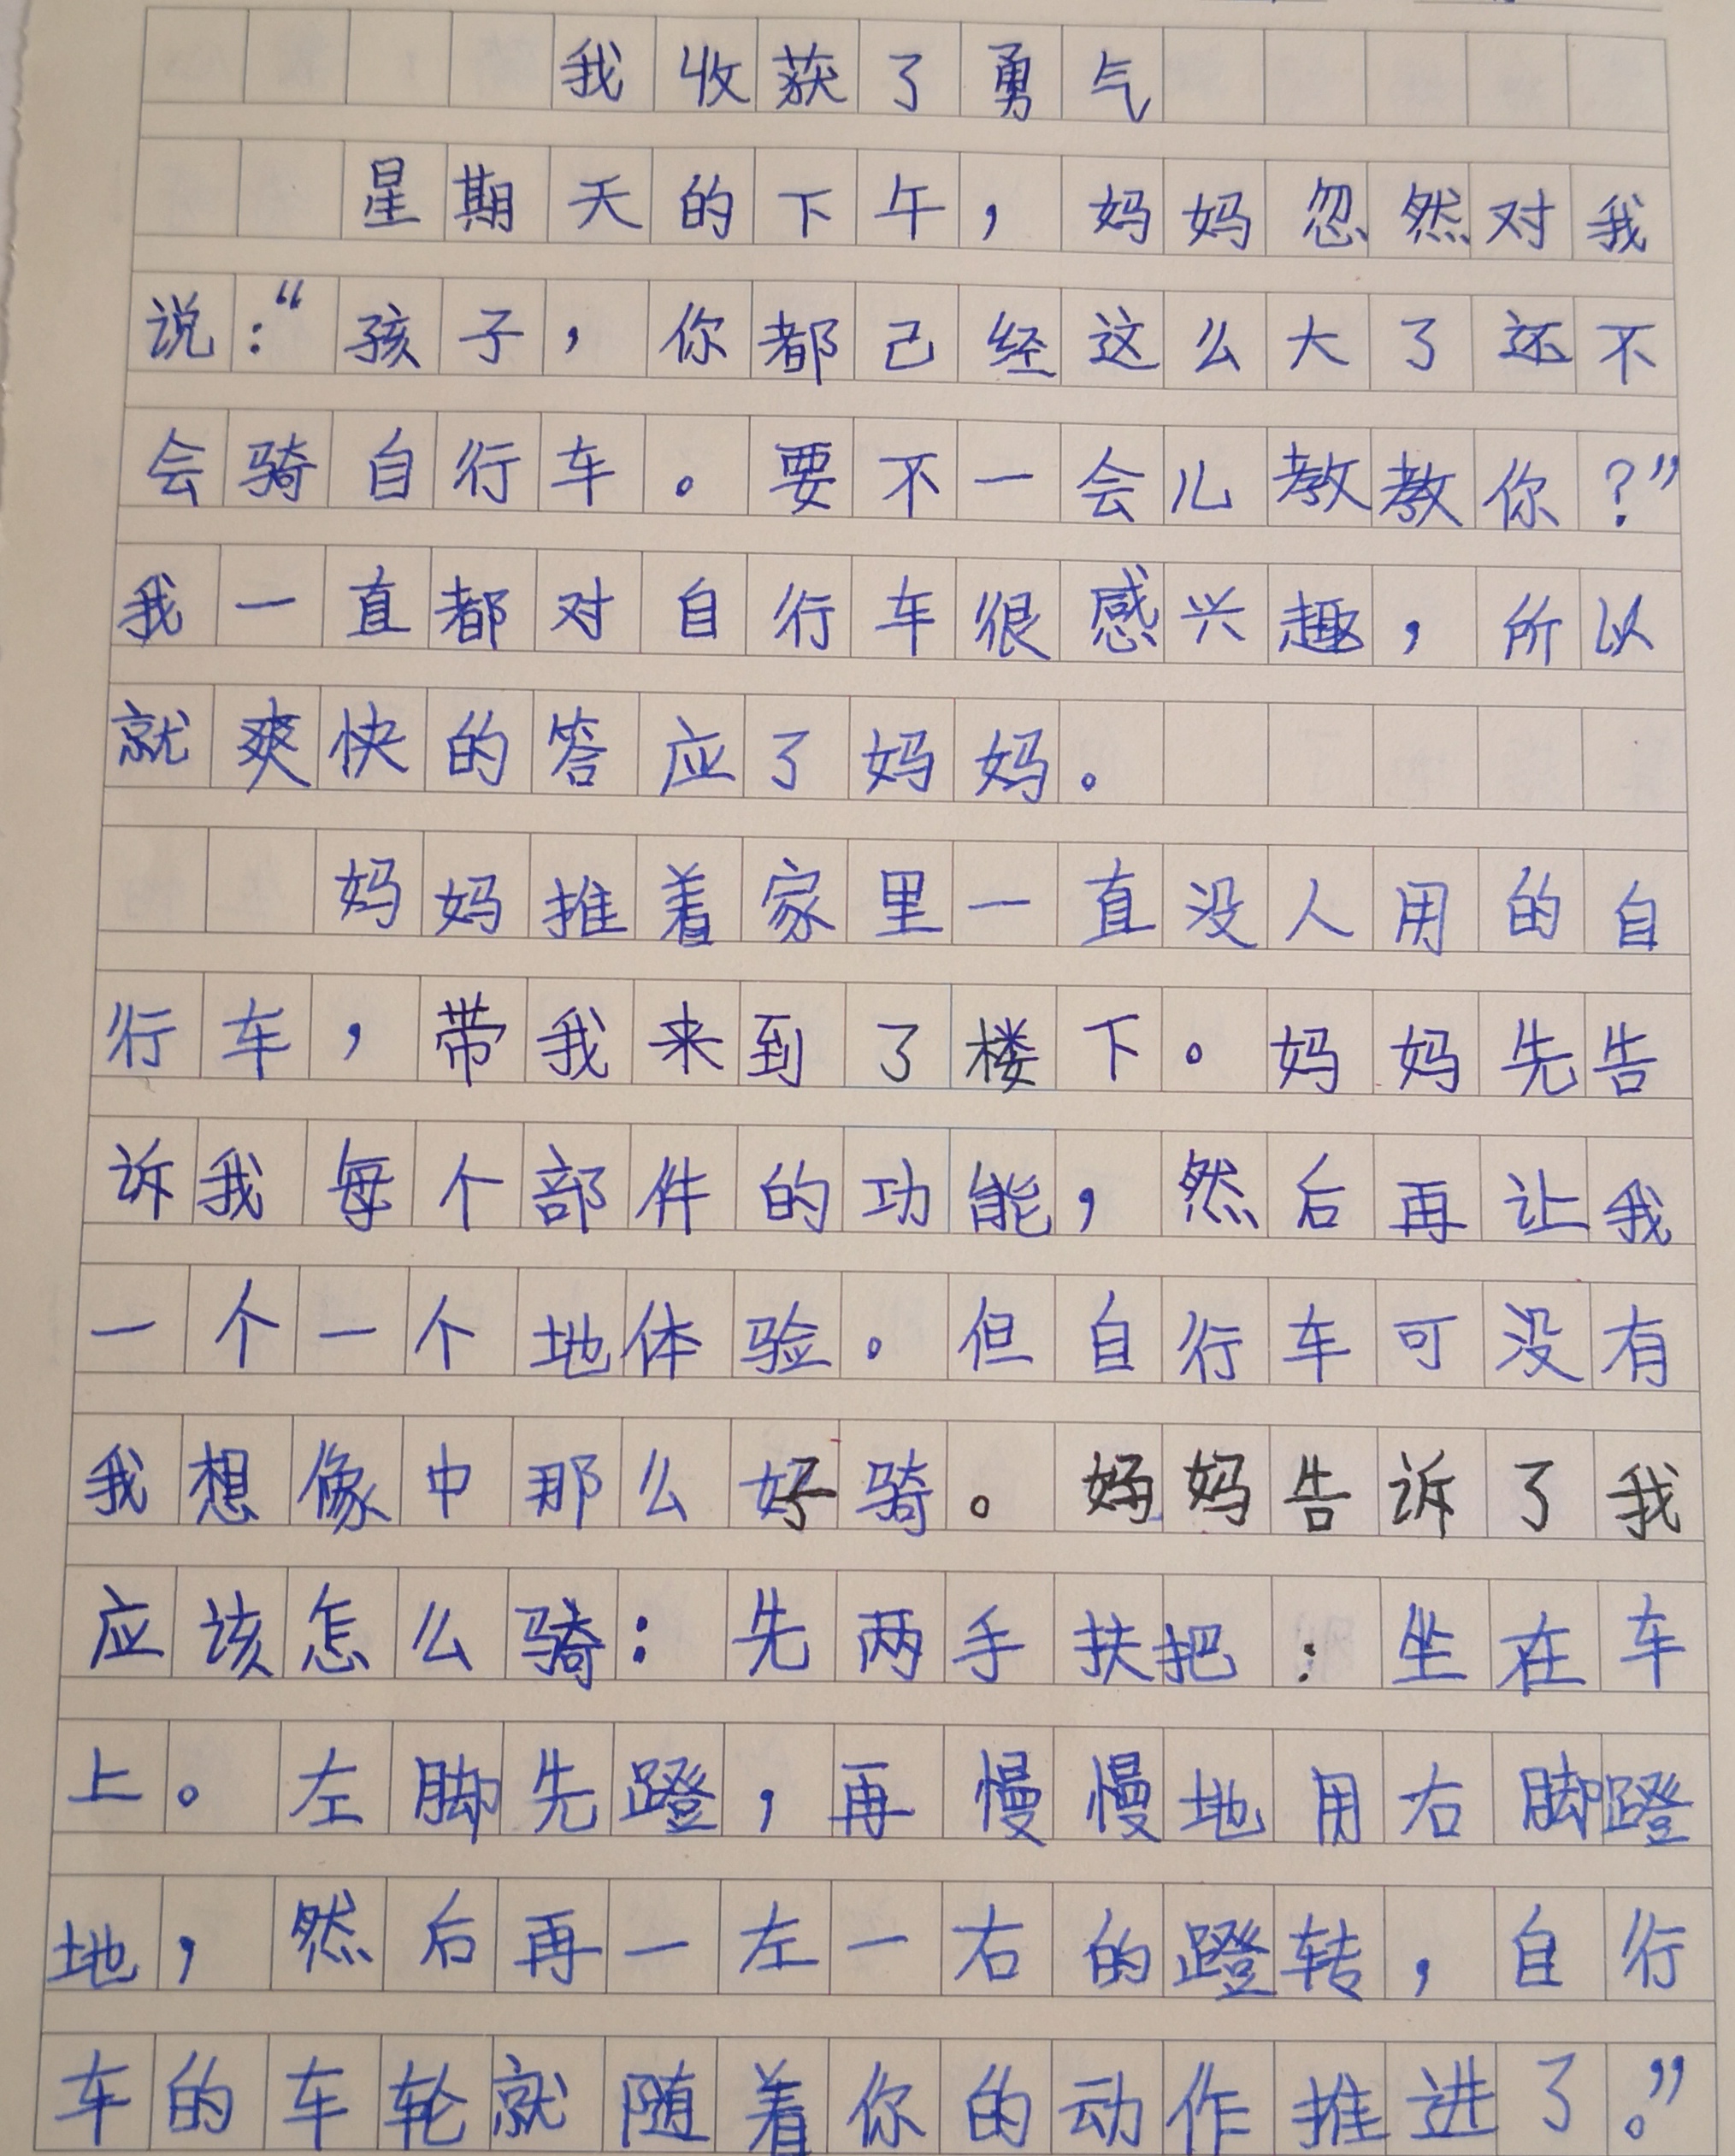 我收获了勇气
星期天的下午，妈妈忽然对我
说：“孩子，你都已经这么大了还不
会骑自行车。要不一会儿教教你？”
我一直都对自行车很感兴趣，所以
就爽快的答应了妈妈。
妈妈推着家里一直没人用的自
行车，带我来到了楼下。妈妈先告
诉我每个部件的功能，然后再让我
一个一个地体验。但自行车可没有
我想像中那么好骑。妈妈告诉了我
应该怎么骑：先两手扶把；坐在车
上。左脚先蹬，再慢慢地用右脚蹬
地，然后再一左一右的蹬转，自行
车的车轮就随着你的动作推进了。”